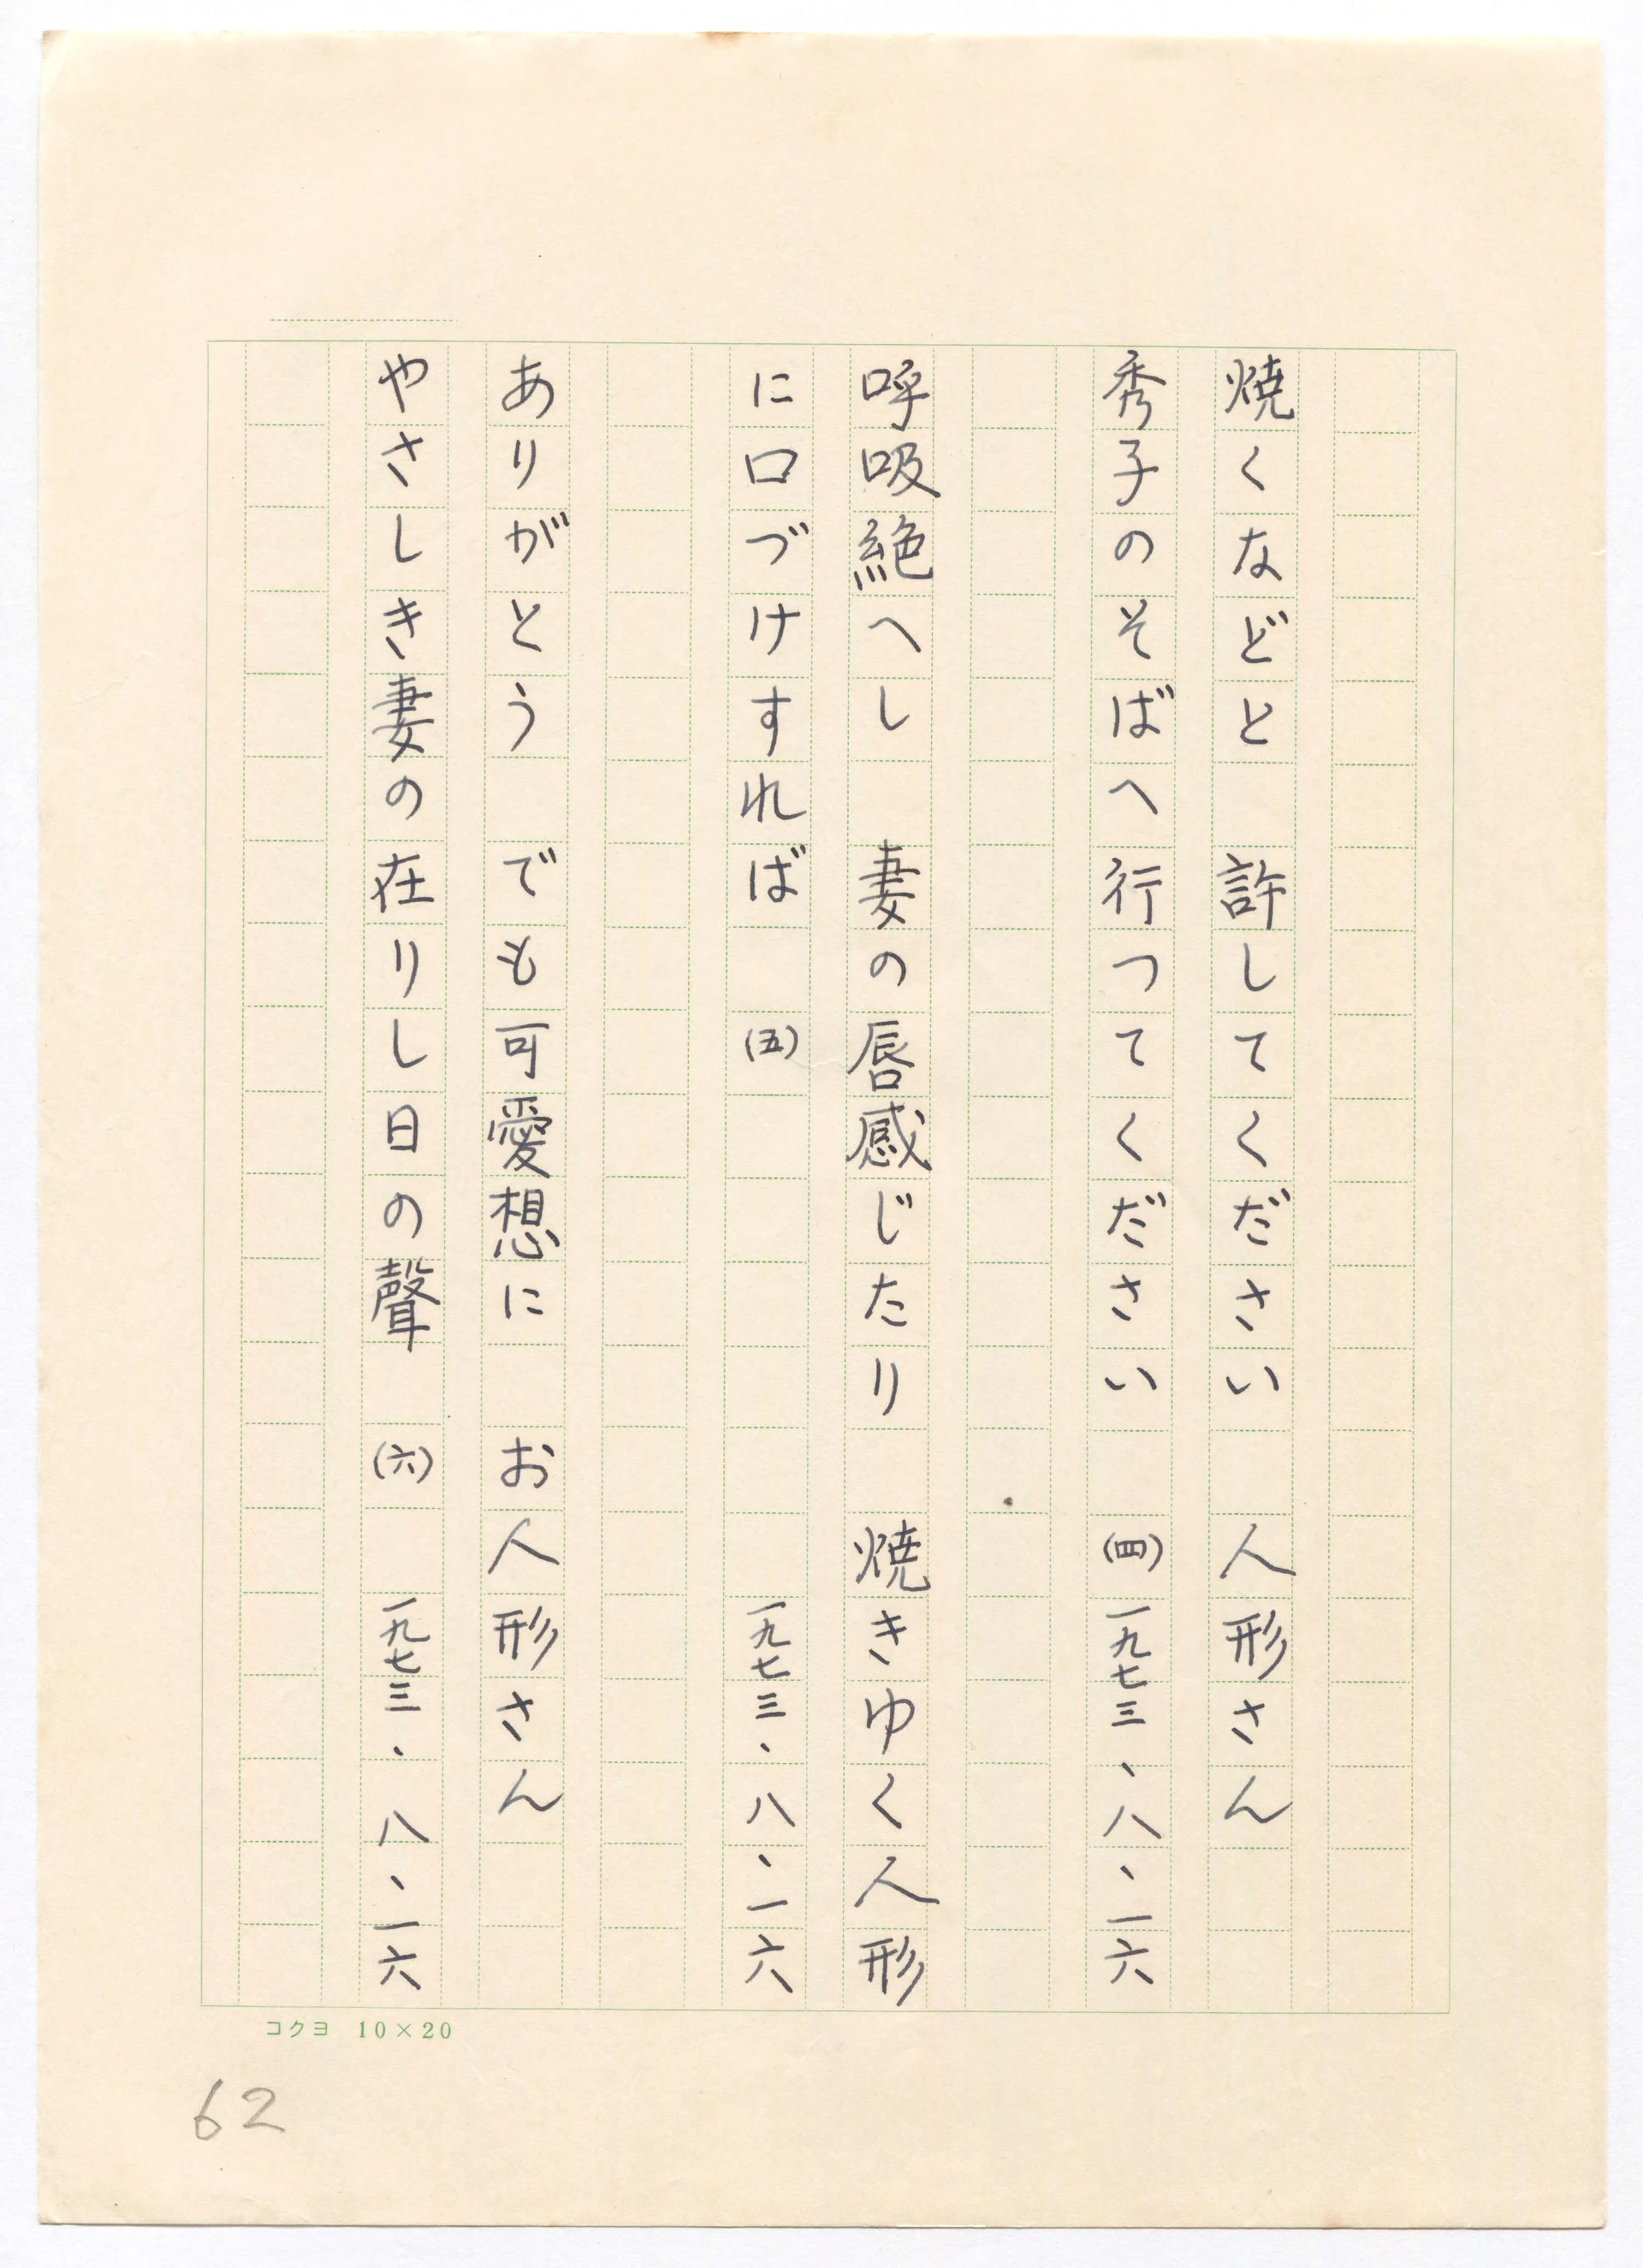 焼くなどと　許してください　人形さん
秀子のそばへ行つてください　(四)一九七三、八、一六
呼吸絶へし　妻の唇感じたり　焼きゆく人形
に口づけすれば　(五)　一九七三、八、一六
ありがとう　でも可愛想に　お人形さん
やさしき妻の在りし日の聲　(六)　一九七三、八、一六
コクヨ　10×20
62